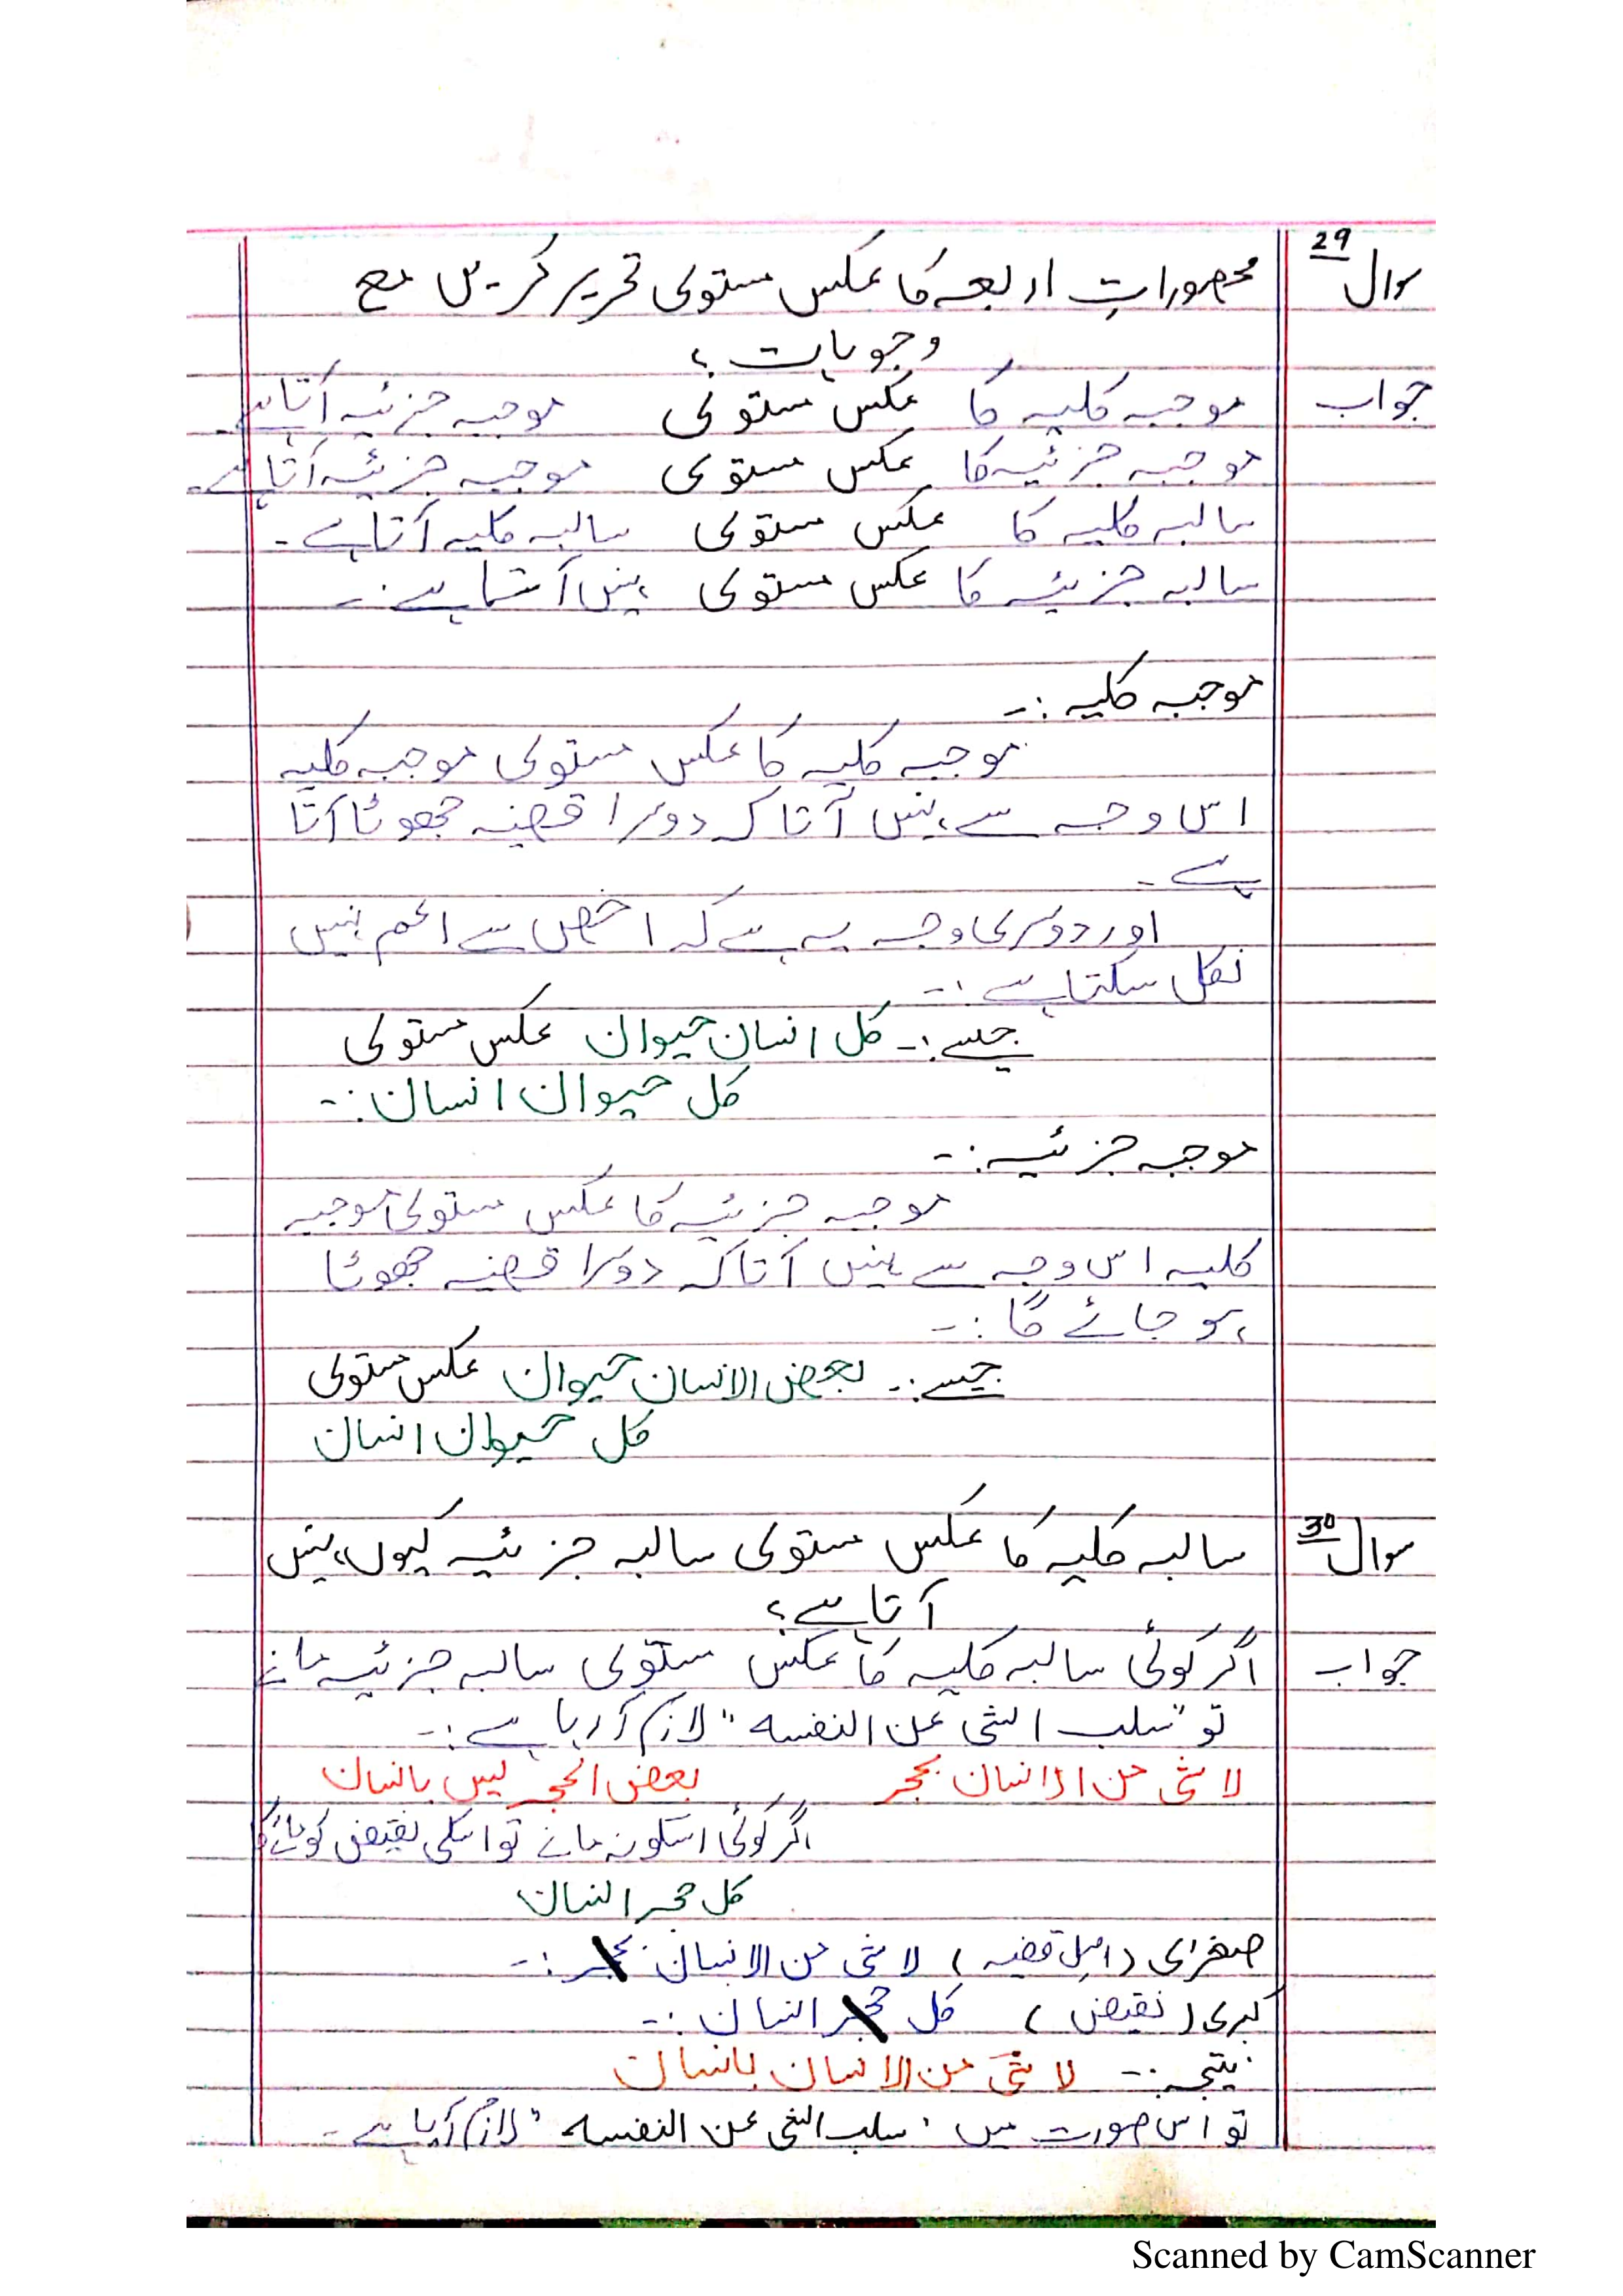 سوال 29 محصورات اربعہ کا عکس مستوی تحریر کریں مع
وجوہات ؟
جواب موجبہ کلیہ کا عکس مستوی موجبہ جزئیہ آتا ہے۔
موجبہ جزئیہ کا عکس مستوی موجبہ جزئیہ آتا ہے۔
سالبہ کلیہ کا عکس مستوی سالبہ کلیہ آتا ہے۔
سالبہ جزئیہ کا عکس مستوی نہیں آتا ہے:۔
موجبہ کلیہ :۔
موجبہ کلیہ کا عکس مستوی موجبہ کلیہ
اس وجہ سے نہیں آتا کہ دوسرا قضیہ جھوٹا آتا
ہے۔
اور دوسری وجہ یہ ہے کہ اخص سے اعم نہیں
نکل سکتا ہے:۔
جیسے:۔ کل انسان حیوان عکس مستوی
کل حیوان انسان:۔
موجبہ جزئیہ:۔
موجبہ جزئیہ کا عکس مستوی موجبہ
کلیہ اس وجہ سے نہیں آتا کہ دوسرا قضیہ جھوٹا
ہو جائے گا:۔
جیسے:۔ بعض الانسان حیوان عکس مستوی
کل حیوان انسان
سوال 30 سالبہ کلیہ کا عکس مستوی سالبہ جزئیہ کیوں نہیں
آتا ہے؟
جواب اگر کوئی سالبہ کلیہ کا عکس مستوی سالبہ جزئیہ مانے
تو "سلب الشی عن النفسہ" لازم آ رہا ہے:۔
لا شی من الانسان بحجر بعض الحجر لیس بانسان
اگر کوئی اسکو نہ مانے تو اسکی نقیض کو مانے گا
کل حجر انسان
صغرای (اصل قضیہ) لا شی من الانسان بحجر:۔
کبری (نقیض) کل حجر انسان:۔
نتیجہ:۔ لا شی من الانسان بانسان
تو اس صورت میں "سلب الشی عن النفسہ" لازم آ رہا ہے۔
Scanned by CamScanner